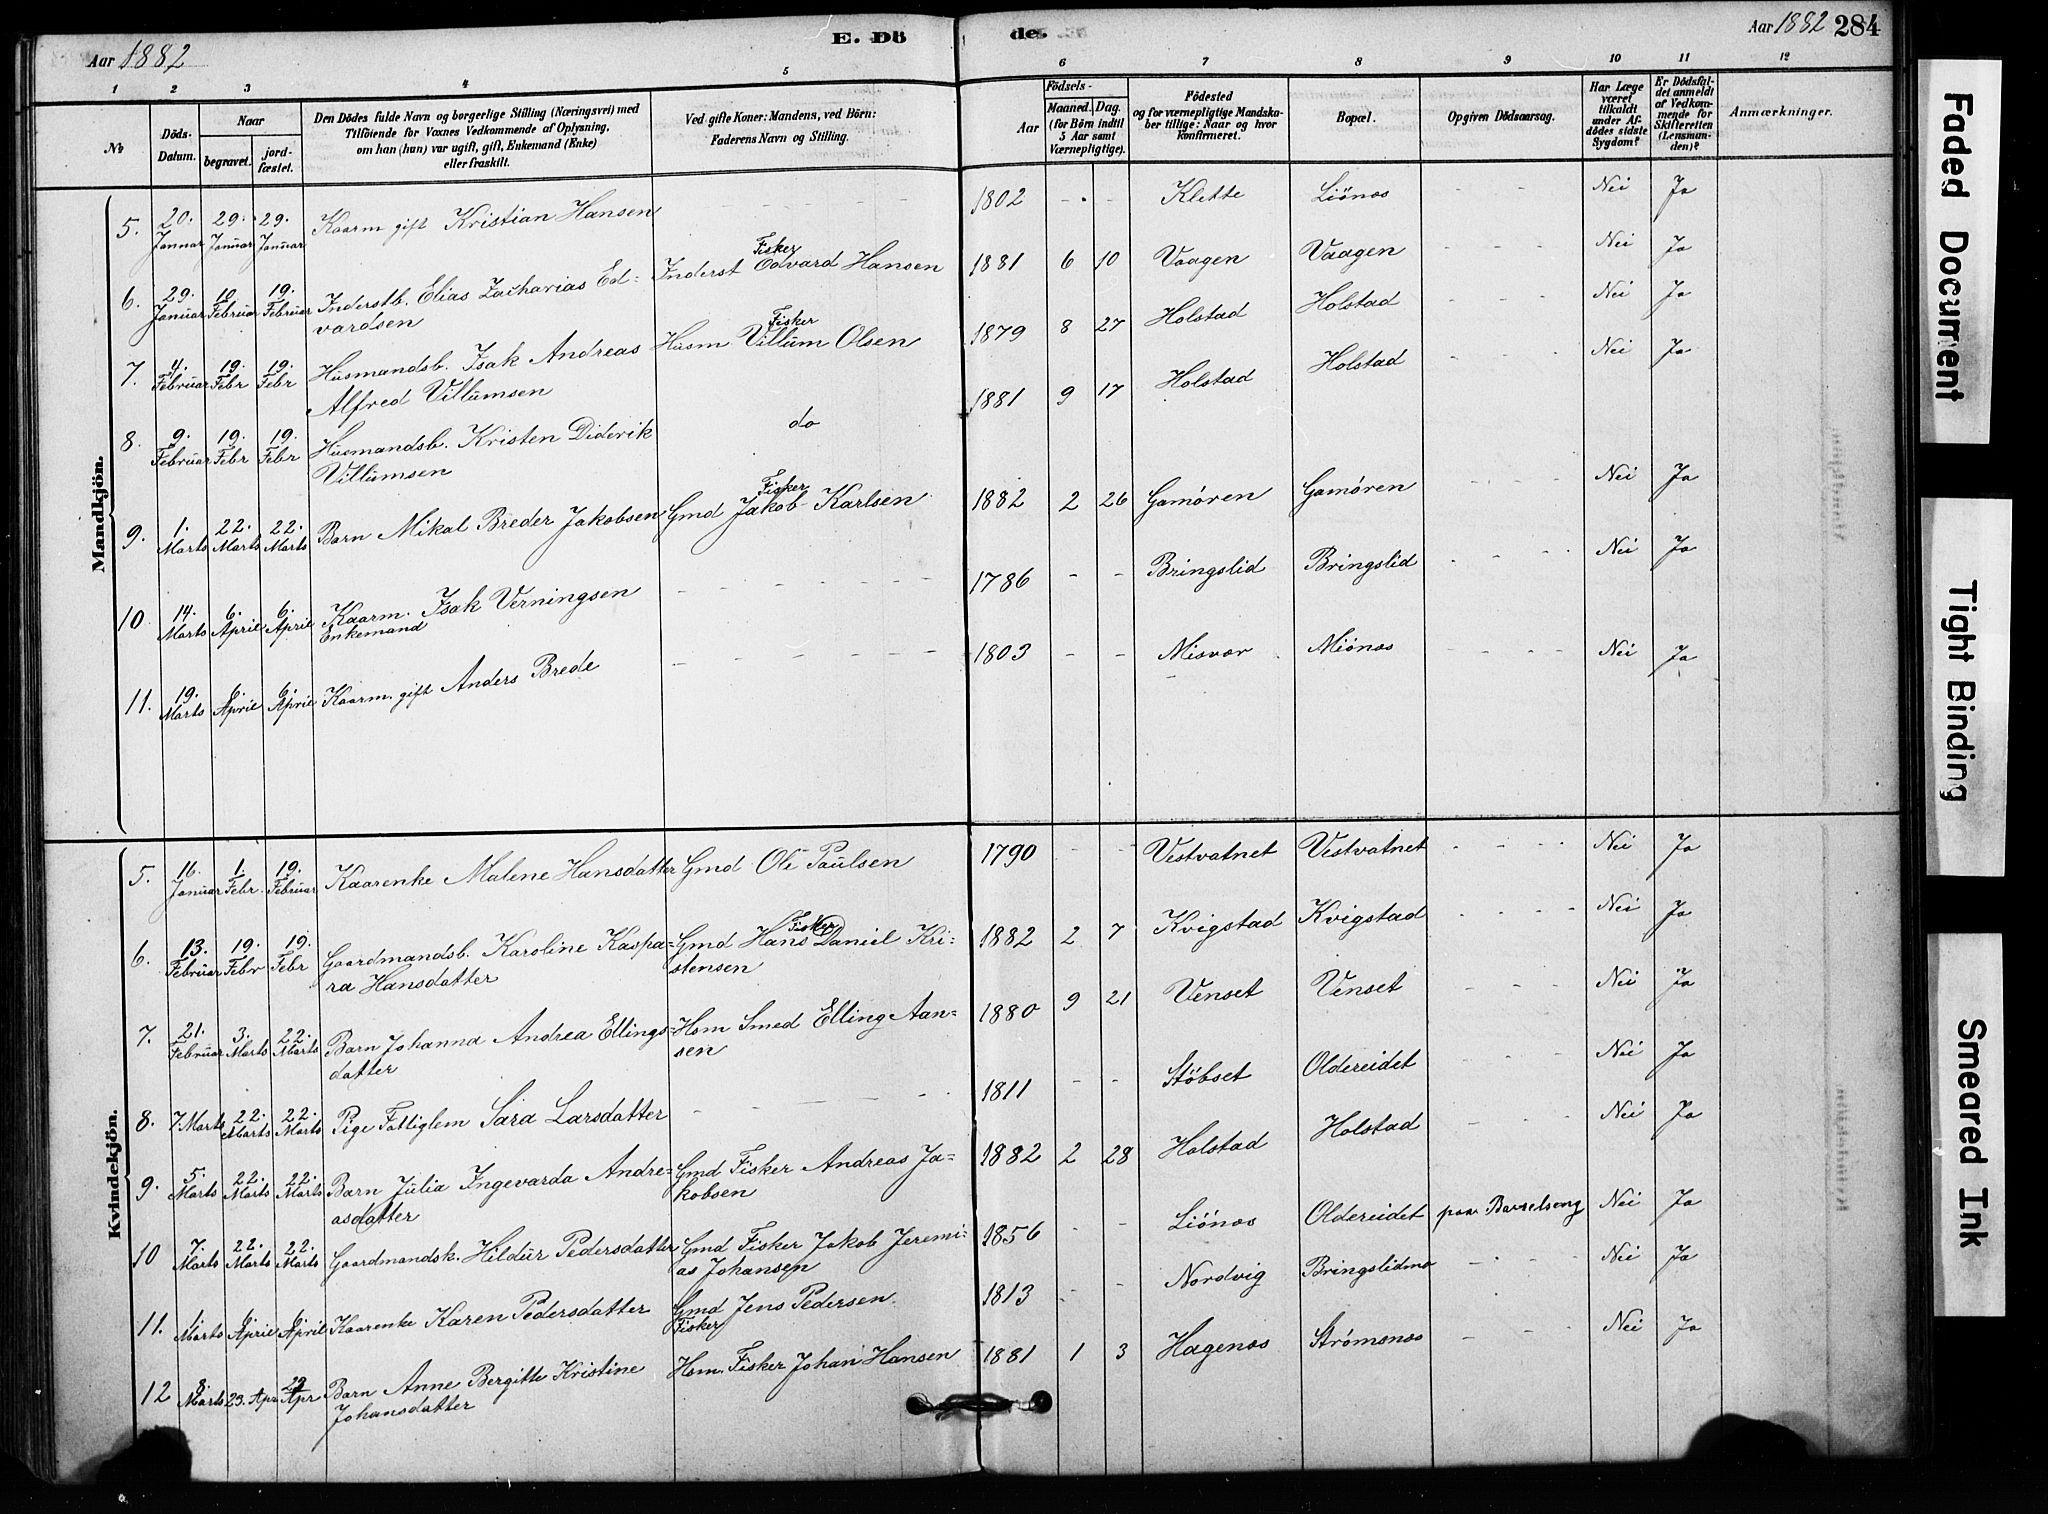 Aar 1882
E. Dö
de.
Aar 1882 284
1 2 3 4 5 6 7 8 9 10 11 12
No
Döds-Datum.
Naar
begravet.
jord-fæstet.
Den Dödes fulde Navn og borgerlige Stilling (Næringsvei) med
Tilföiende for Voxnes Vedkommende af Oplysning,
om han (hun) var ugift, gift, Enkemand (Enke)
eller fraskilt.
Ved gifte Koner: Mandens, ved Börn:
Faderens Navn og Stilling.
Födsels-
Aar
Maaned. Dag.
(for Börn indtil
5 Aar samt
Værnepligtige).
Födested
og for værnepligtige Mandska-
ber tillige: Naar og hvor
konfirmeret.
Bopæl.
Opgiven Dödsaarsag.
Har Læge
været
tilkaldt
under Af-
dödes sidste
Sygdom?
Er Dödsfal-
det anmeldt
af Vedkom-
mende for
Skifteretten
(Lensman-
den)?
Anmærkninger.
Mandkjön.
5. 20. Januar 29. Januar 29. Januar Kaarm gift Kristian Hansen - - - 1802 - - Klette Liönæs - - - Nei Ja
6. 29. Januar 10 Februar 19. Februar Inderstb. Elias Zacharias Ed-
vardsen Inderst Fisker Edvard Hansen 1881 6 10 Vaagen Vaagen - - - Nei Ja
7. 4. Februar 19. Febr 19. Febr Husmandsb. Isak Andreas
Alfred Villumsen Husm Fisker Villum Olsen 1879 8 27 Holstad Holstad - - - Nei Ja
8. 9. Februar 19. Febr 19. Febr Husmandsb. Kristen Diderik
Villumsen do 1881 9 17 Holstad Holstad - - - Nei Ja
9. 1. Marts 22. Marts 22. Marts Barn Mikal Breder Jakobsen Gmd Fisker Jakob Karlsen 1882 2 26 Gamøren Gamøren - - - Nei Ja
10. 14. Marts 6. April 6. April Kaarm. Isak Verningsen
Enkemand - - - 1786 - - Bringslid Bringslid - - - Nei Ja
11. 19. Marts 6. April 6. April Kaarm. gift Anders Brede - - - 1803 - - Misvær Miönæs - - - Nei Ja
Kvindekjön.
5. 16. Januar 1. Febr. 19. Februar Kaarenke Malene Hansdatter Gmd Ole Paulsen 1790 - - Vestvatnet Vestvatnet - - - Nei Ja
6. 13. Februar 19. Febr 19. Febr Gaardmandsb. Karoline Kaspa-
ra Hansdatter Gmd Fisker Hans Daniel Kri-
stensen 1882 2 7 Kvigstad Kvigstad - - - Nei Ja
7. 21. Februar 3. Marts 22. Marts Barn Johanna Andrea Ellings-
datter Hsm Smed Elling Aan-
sen 1880 9 21 Venset Venset - - - Nei Ja
8. 7 Marts 22. Marts 22. Marts Pige Fattiglem Sara Larsdatter - - - 1811 - - Stöbset Oldereidet - - - Nei Ja
9. 5. Marts 22. Marts 22. Marts Barn Julia Ingevarda Andre-
asdatter Gmd Fisker Andreas Ja-
kobsen 1882 2 28 Holstad Holstad - - - Nei Ja
10 7. Marts 22. Marts 22. Marts Gaardmandsk. Hildur Pedersdatter Gmd Fisker Jakob Jeremi-
as Johansen 1856 - - Liönæs Oldereidet paa Barselseng Nei Ja
11. 1. Marts 6 April 6 April Kaarenke Karen Pedersdatter Gmd Jens Pedersen
Fisker 1813 - - Nordvig Bringslidmo - - - Nei Ja
12 8. Marts 23. Apr 23 Apr Barn Anne Bergitte Kristine
Johansdatter Hsm. Fisker Johan Hansen 1881 1 3 Hagenæs Strömsnæs - - - Nei Ja
Faded Document
Tight Binding
Smeared Ink